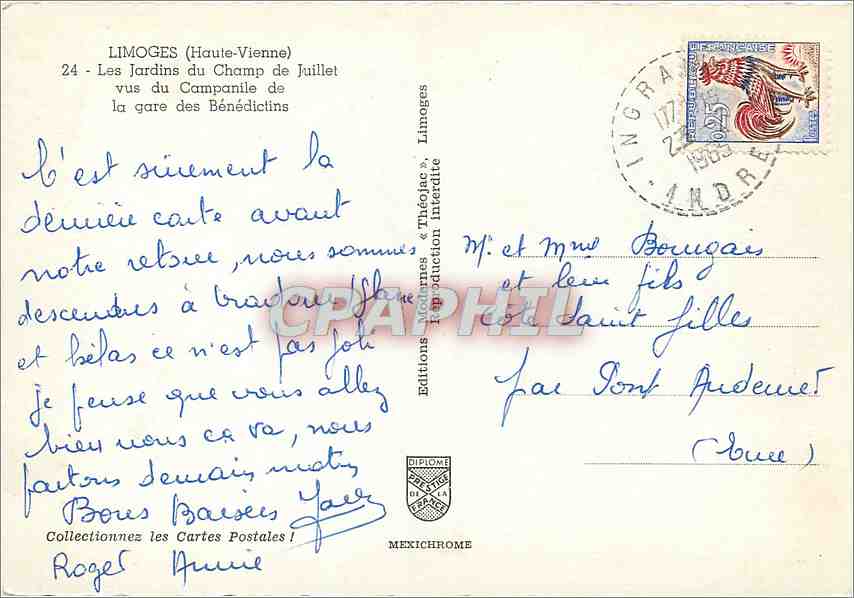 LIMOGES (Haute-Vienne)
24 - Les Jardins du Champ de Juillet
vus du Campanile de
la gare des Bénédictins
C'est surement la
dernière carte avant
notre retour, nous sommes
descendus à Oradour/Glane
et hélas ce n'est pas joli
je pense que vous allez
bien nous ca va, nous
partons demain matin
Bons Baisers
Collectionnez les Cartes Postales !
Roger Annie
Editions Modernes « Théojac », Limoges
Reproduction Interdite
DIPLOME
PRESTIGE
DE LA
FRANCE
MEXICHROME
REPUBLIQUE FRANÇAISE
0,25
POSTES
INGRANDES
17
1965
INDRE
Mr et Mme Bourgais
et leur fils
Côte Saint Gilles
par Pont Audemer
(Eure)
CPAPHIL